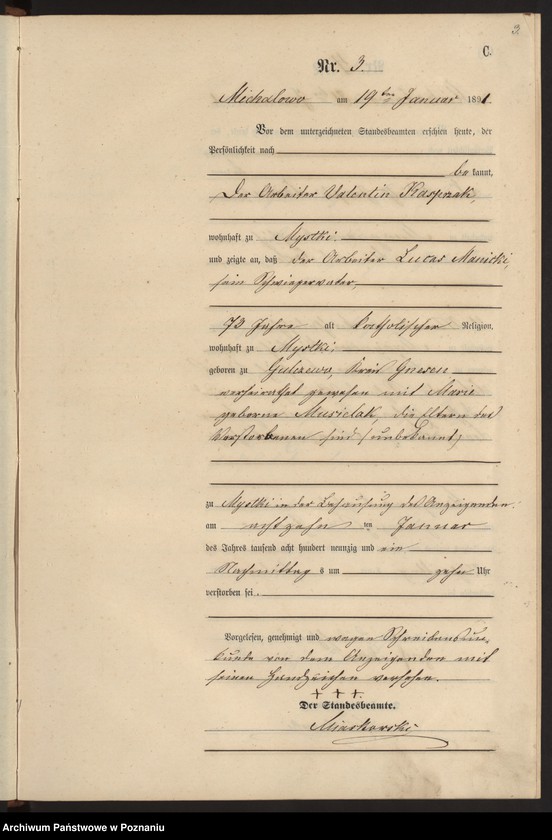 3
C.
Nr. 3.
Michalowo am 19ten Januar 1891.
Vor dem unterzeichneten Standesbeamten erschien heute, der
Persönlichkeit nach
bekannt,
Der Arbeiter Valentin Kasprzak,
wohnhaft zu Mystki.
und zeigte an, daß der Arbeiter Lucas Manicki,
sein Schwiegervater,
73 Jahre alt katholischer Religion,
wohnhaft zu Mystki,
geboren zu Gulczewo, Kreis Gnesen
verheirathet gewesen mit Marie
geborne Musielak, die Eltern des
Verstorbenen sind (unbekannt)
zu Mystki in der Behausung des Anzeigenden
am achtzehn ten Januar
des Jahres tausend acht hundert neunzig und ein
Nachmittags um zehn Uhr
verstorben sei.
Vorgelesen, genehmigt und wegen Schreibensun-
kunde von dem Anzeigenden mit
seinen Handzeichen versehen.
+ + +.
Der Standesbeamte.
Miaskowski
Archiwum Państwowe w Poznaniu